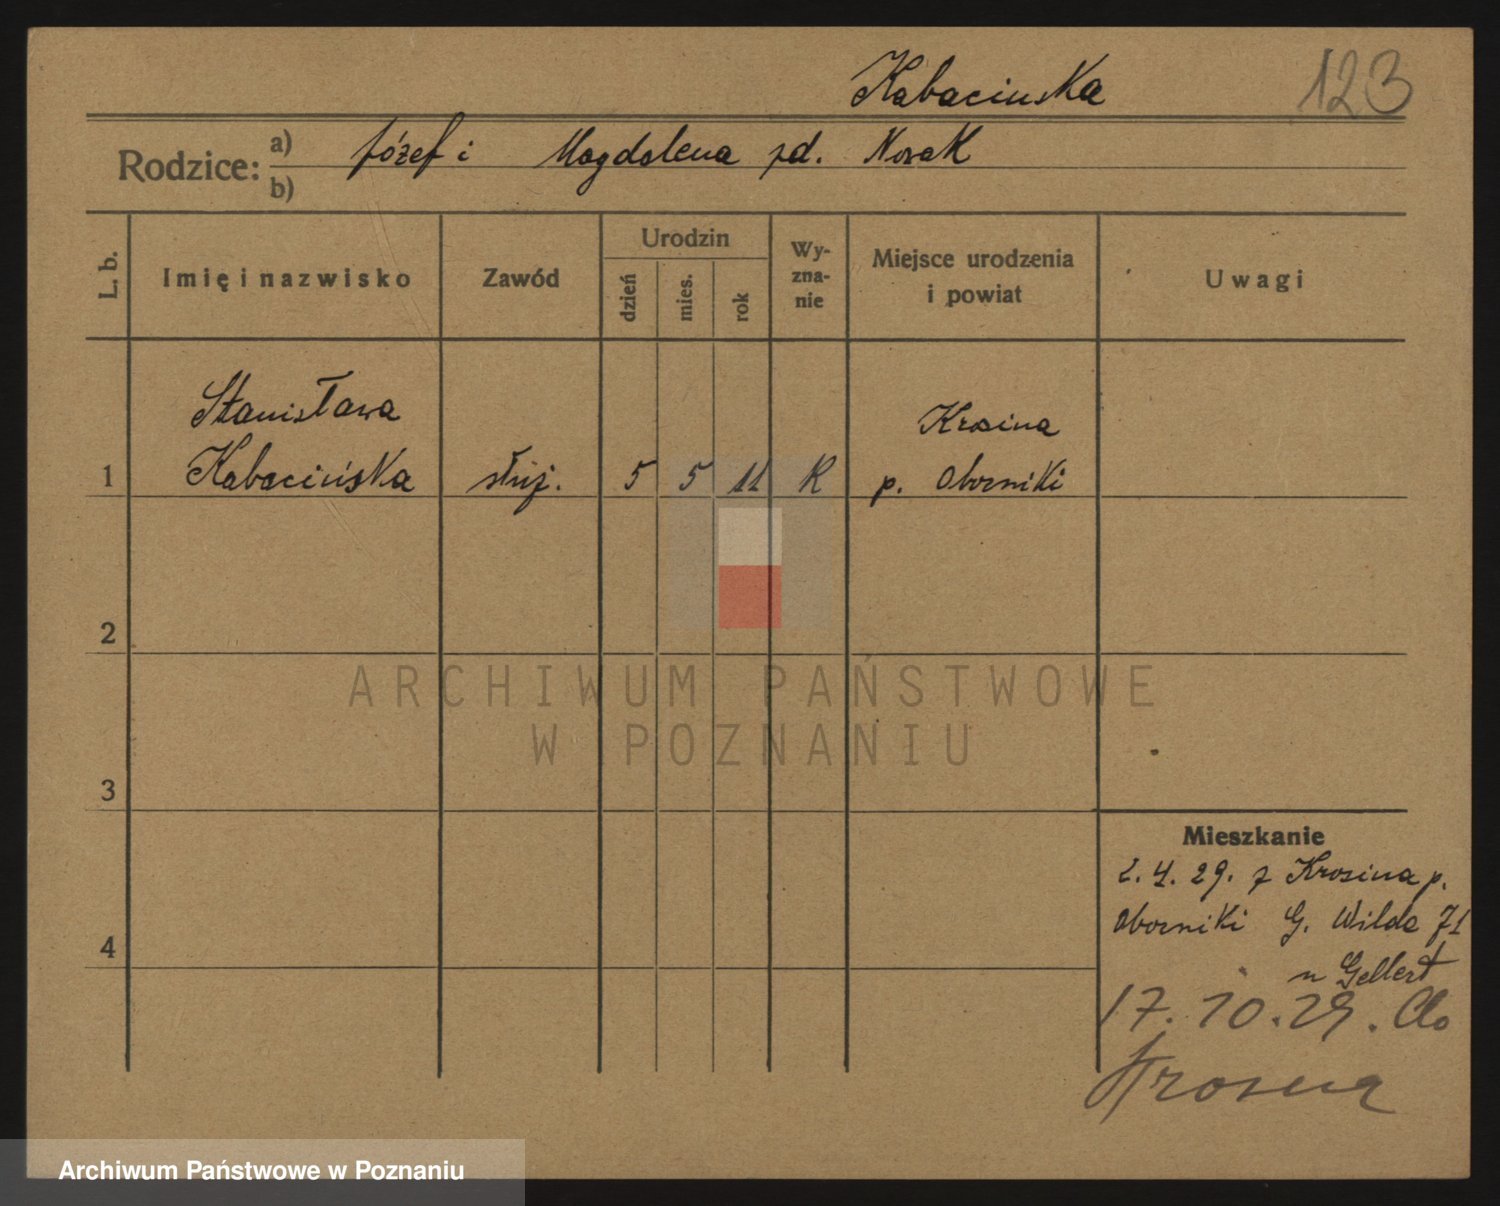 Kabacinska 123
Rodzice: a) Józef i Magdalena zd. Nowak
b)
L. b. Imię i nazwisko Zawód Urodzin dzień mies. rok Wy-zna-nie Miejsce urodzenia i powiat Uwagi
Stanisława Krosina
1 Kabacińska służ. 5 5 11 R p. Oborniki
2
ARCHIWUM PAŃSTWOWE
W POZNANIU
3
Mieszkanie
2. 4. 29. z Krosina p.
Oborniki G. Wilda 71
4
u Gellert
17. 10. 29. do
Krosina
Archiwum Państwowe w Poznaniu